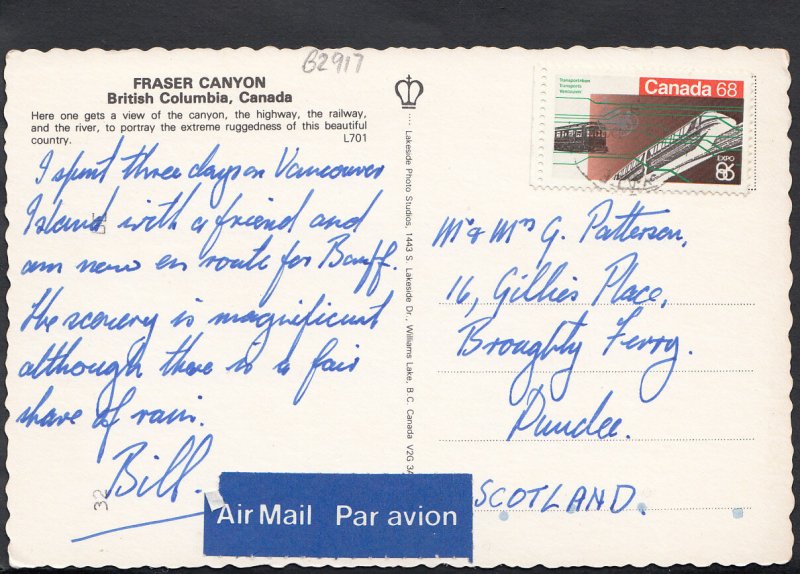 B2917
FRASER CANYON
British Columbia, Canada
Here one gets a view of the canyon, the highway, the railway,
and the river, to portray the extreme ruggedness of this beautiful
country. L701
I spent three days on Vancouver
Island with a friend and
am now en route for Banff.
The scenery is magnificent
although there is a fair
share of rain.
Bill.
32
Lakeside Photo Studios, 1443 S. Lakeside Dr., Williams Lake, B.C. Canada V2G 3A
Transportation
Transports
Vancouver
Canada 68
EXPO
86
Mr & Mrs G. Patterson,
16, Gillies Place,
Broughty Ferry.
Dundee.
SCOTLAND.
Air Mail Par avion